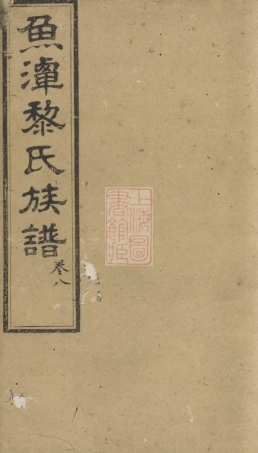 魚潭黎氏族譜
卷八
上海圖
書館藏